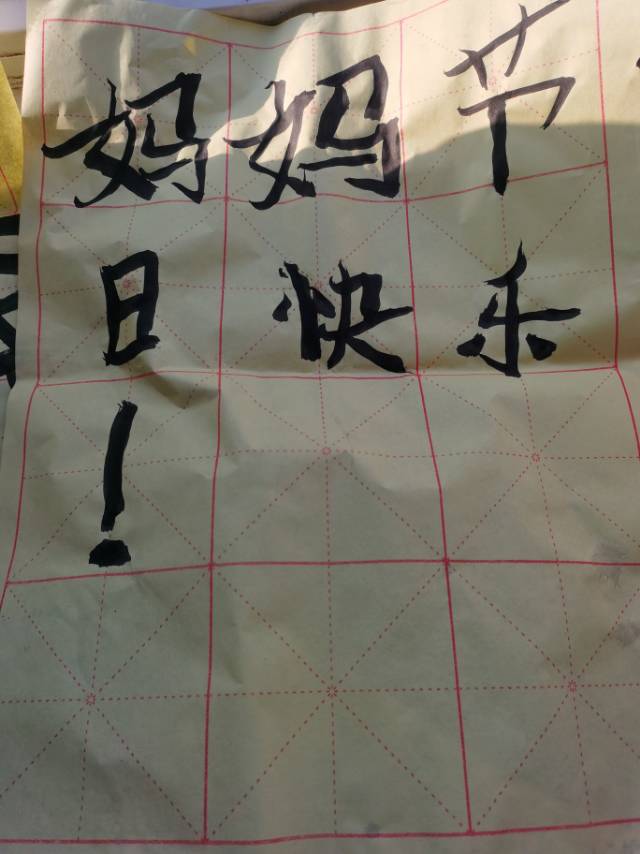 妈妈节
日快乐
！